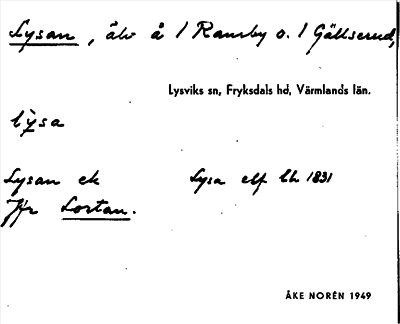 Lysan, älv å 1 Ransby o. 1 Gällserud,
Lysviks sn, Fryksdals hd, Värmlands län.
lỳsa
Lysan ek Lysa elf lh 1831
Jfr Lortan.
ÅKE NORÉN 1949